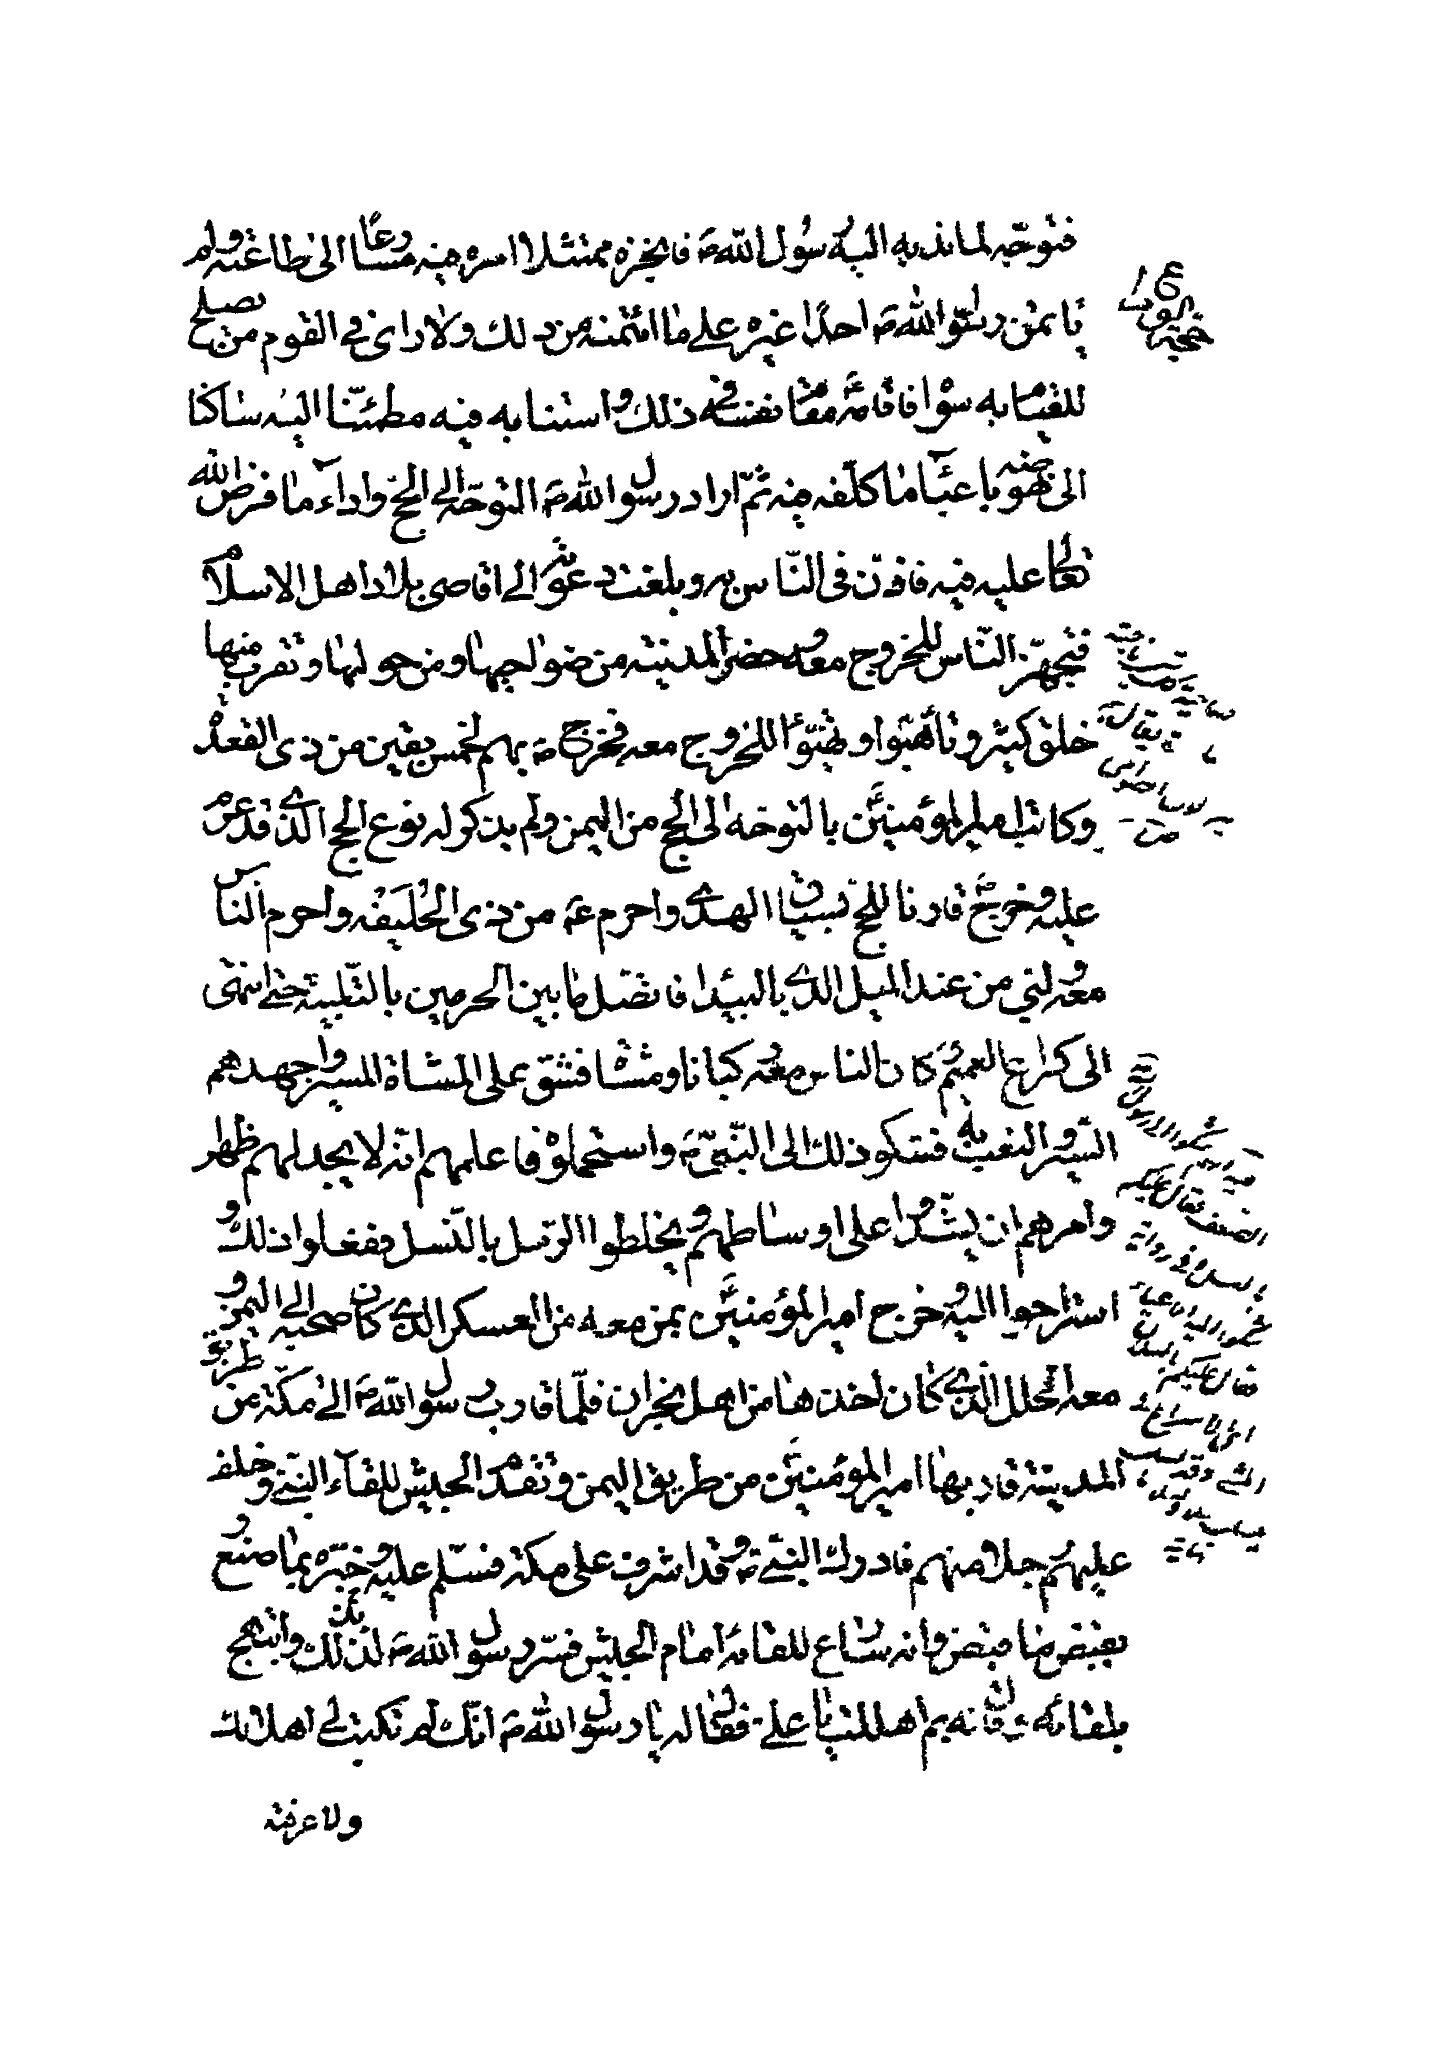 فتوجّه لما ندبه اليه رسول اللّه ص فانجزه ممتثلا امره فيه مسارعًا الى طاعته ولم
ياتمن رسول اللّه ص احدًا غيره على ما ائتمنه من ذلك ولا راى في القوم من يصلح
للقيام به سواه فاقامه ع مقام نفسه في ذلك واستنابه فيه مطمئنّا اليه ساكنا
الى نهوضه باعباء ما كلّفه فيه ثمّ اراد رسول اللّه ص التوجّه الى الحجّ واداء ما فرض اللّه
تعالى عليه فيه فاذّن في النّاس به وبلغت دعوته الى اقاصى بلاد اهل الاسلام
فتجهّز النّاس للخروج معه وحضر المدينة من ضواحيها ومن حولها وتقرب منها
خلق كثير وتأهّبوا وتهيّؤا للخروج معه فخرج ص بهم لخمس بقين من ذى القعدة
وكاتب امير المؤمنين ع بالتوجّه الى الحج من اليمن ولم يذكر له نوع الحج الذى قد عزم
عليه وخرج ص قارنا للحجّ بسياق الهدى واحرم ع من ذى الحُلَيفَه واحرم الناس
معه ولبى من عند الميل الذى بالبيداء فاتصل ما بين الحرمين بالتلبية حتى انتهى
الى كراع الغميم وكان الناس معه ركبانا ومشاة فشق على المشاة المسير واجهدهم
السير والتعب به فشكوا ذلك الى النّبىّ ص واستحملوه فاعلمهم انّه لا يجد لهم ظهرا
وامرهم ان يشدّوا على اوساطهم ويخلطوا الرّمل بالنّسل ففعلوا ذلك و
استراحوا اليه وخرج امير المؤمنين ع بمن معه من العسكر الذى كان صحبه الى اليمن و
معه الحلل الذى كان اخذها من اهل نجران فلمّا قارب رسول اللّه ص الى مكّة من طريق
المدينة قاربها امير المؤمنين ع من طريق اليمن وتقدم الجيش للقاء النبى ص وخلف
عليهم رجلا منهم فادرك النبى ص وقد اشرف على مكة فسلّم عليه وخبّره بما صنع و
بقبض ما قبض وانه سارع للقائه امام الجيش فسّر رسول اللّه ص لذلك وابتهج
بلقائه وقال له بم اهللت يا على فقال له يا رسول اللّه ص انّك لم تكتب لى اهلالك
ولا عرفته